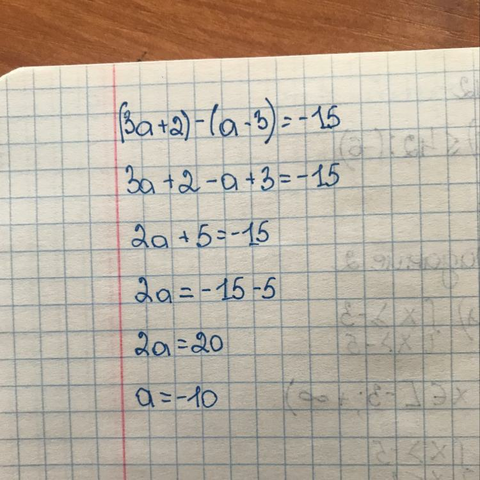 (3a+2)-(a-3)=-15
3a+2-a+3=-15
2a+5=-15
2a=-15-5
2a=20
a=-10